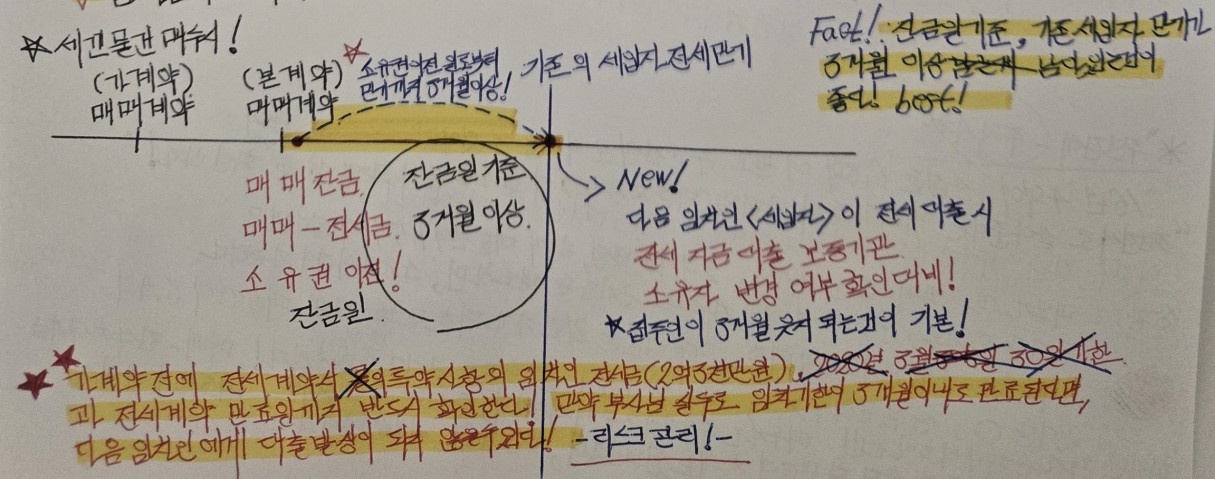 ☆ 세낀물건 매수시!
(가계약)
매매계약
(본계약)
매매계약
☆ 소유권이전 일로부터
만기까지 3개월이상!
기존의 세입자 전세만기
Fact! 잔금일기준, 기존세입자 만기가
3개월 이상 남아있는것이
좋다! best!
매매잔금
매매-전세금.
소유권 이전!
잔금일.
잔금일기준
3개월 이상.
New!
다음 임차인 <세입자>이 전세대출시
전세자금대출 보증기관
소유자 변경 여부 확인대비!
☆집주인이 3개월 웃지 되는것이 기본!
★★ 가계약전에 전세계약서 특약사항의 임차인 전세금(2억3천만원), 2020년 3월 30일 기한
과 전세계약 만료일까지 반드시 확인한다! 만약 부사님 실수로 임차기한이 3개월이내로 만료된다면,
다음임차인에게 대출발생이 되지 않을수있다! -리스크관리!-